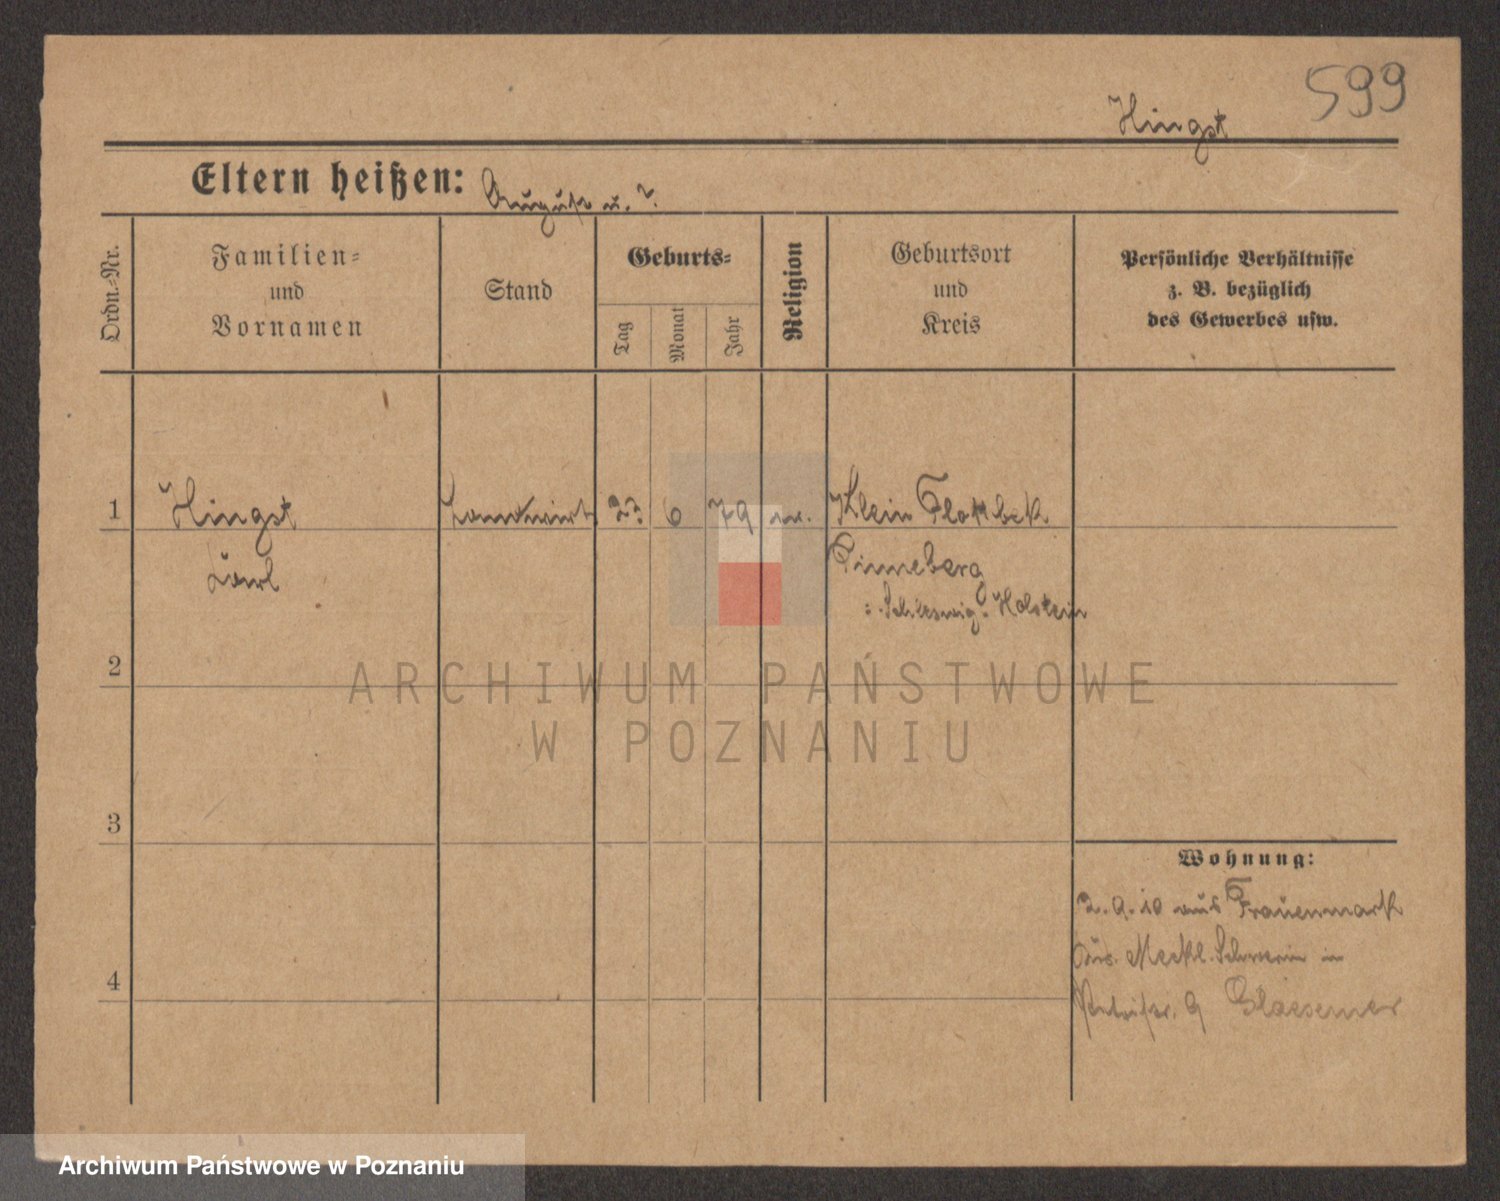 599
Hingst
Eltern heißen: August u. ?
Ordn.-Nr.
Familien-
und
Vornamen
Stand
Geburts-
Tag
Monat
Jahr
Religion
Geburtsort
und
Kreis
Persönliche Verhältnisse
z. B. bezüglich
des Gewerbes usw.
1 Hingst Landwirt 23 6 79 ev. Klein Flottbek
Carl Pinneberg
Schleswig Holstein
2
ARCHIWUM PAŃSTWOWE
W POZNANIU
3
Wohnung:
2.9.10 aus Frauenmark
Meckl. Schwerin in
4
9 Glaesemer
Archiwum Państwowe w Poznaniu